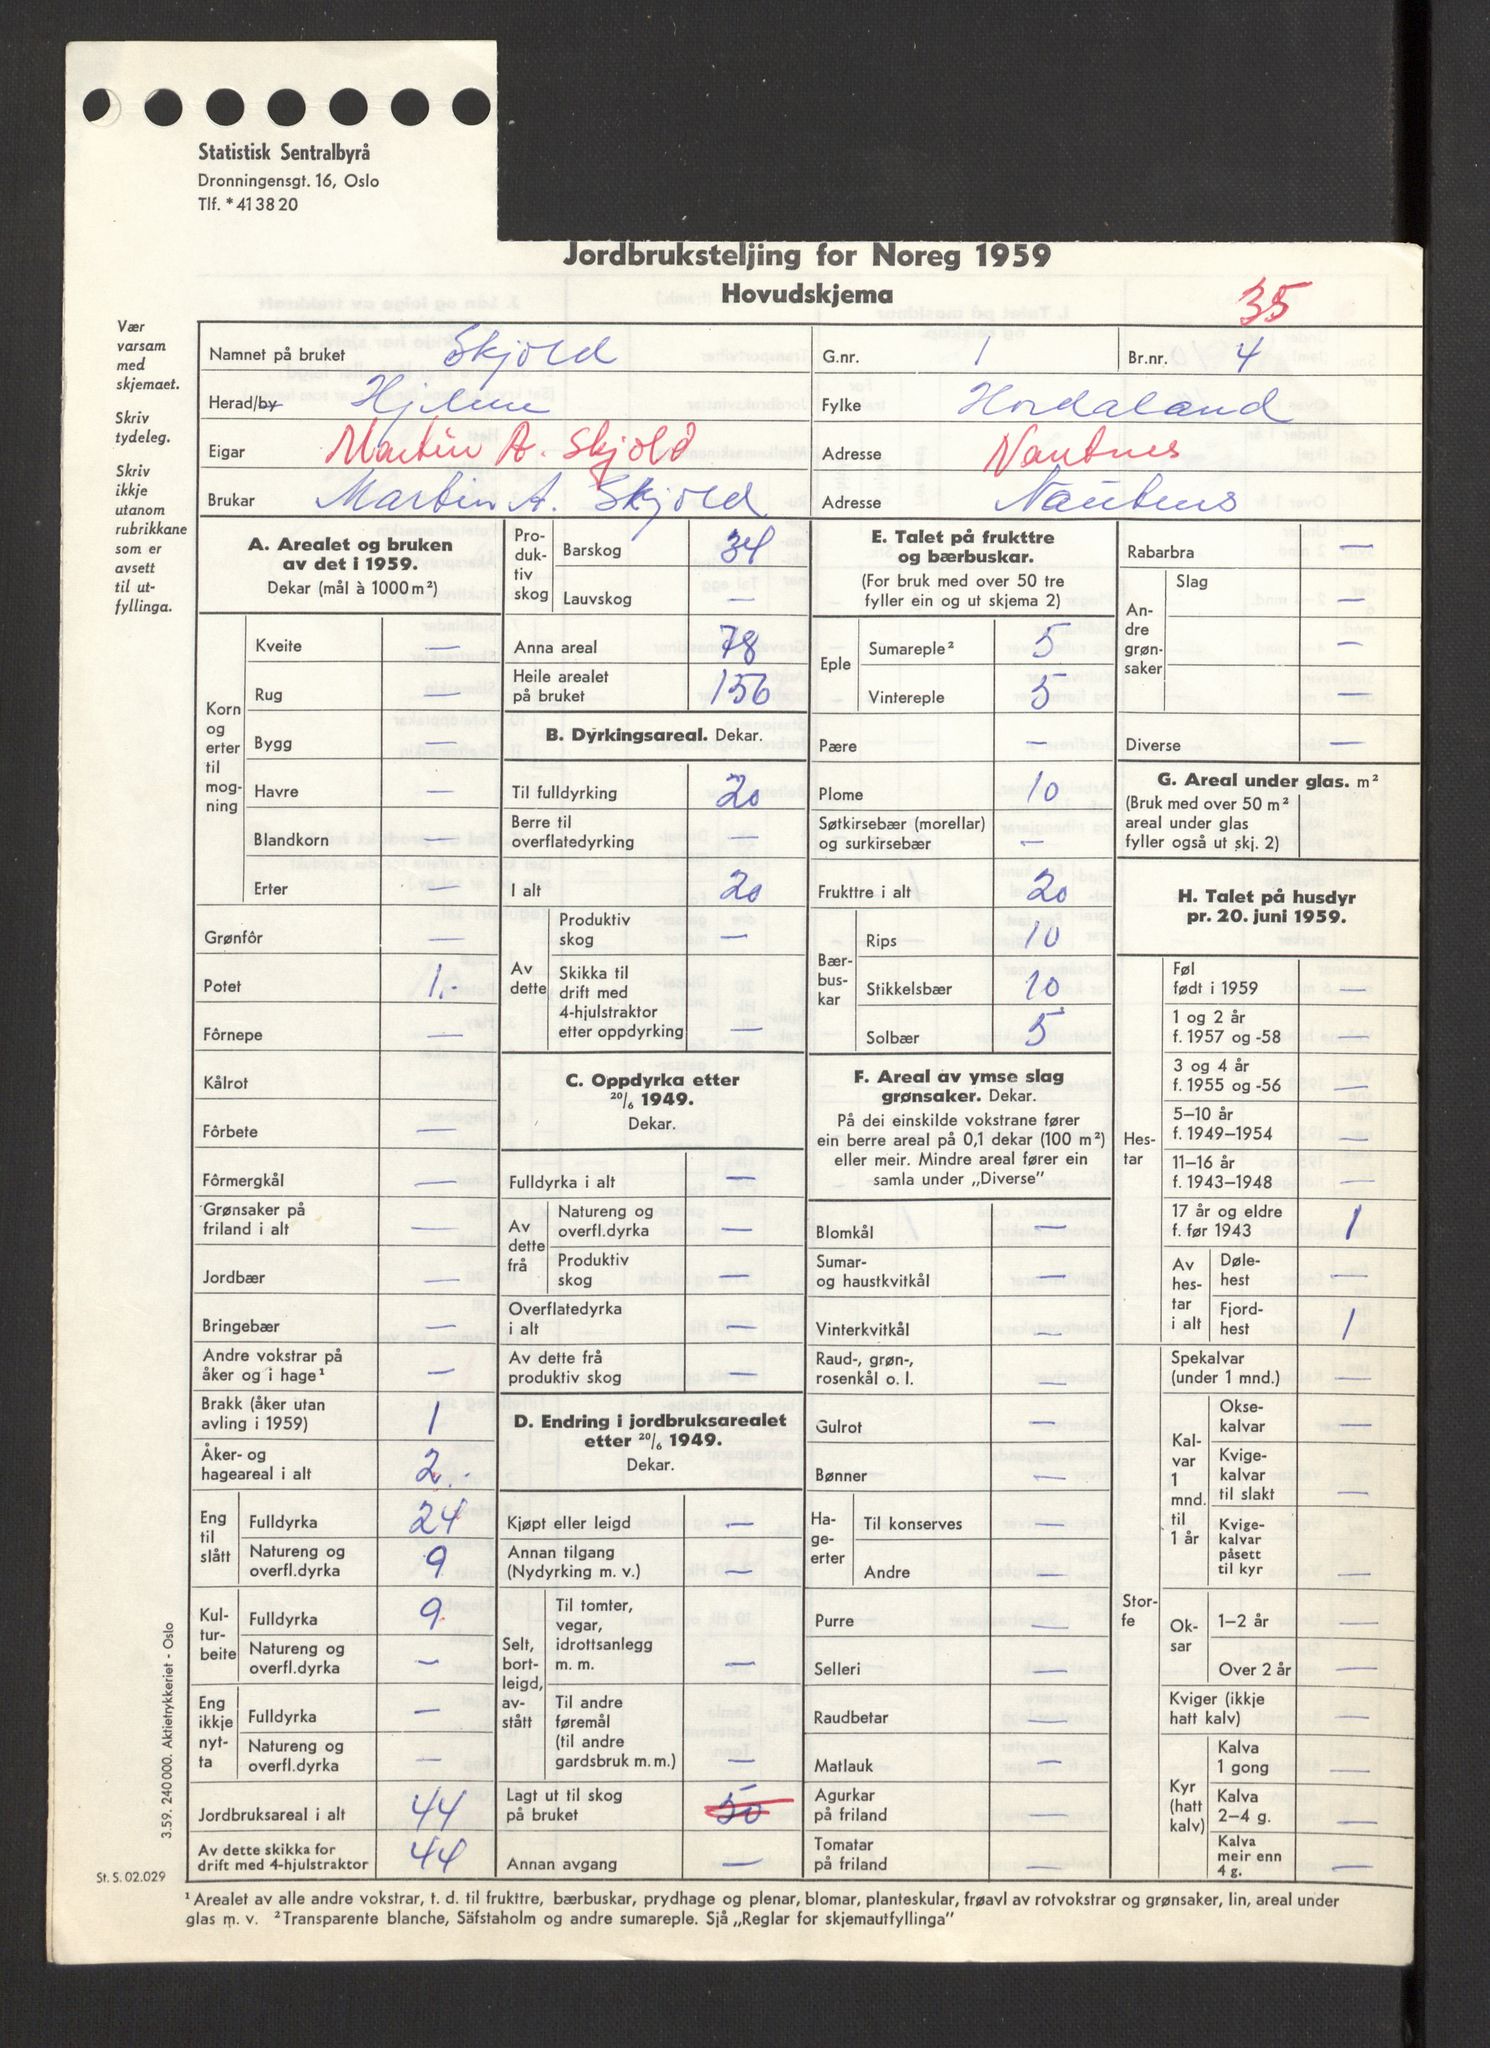 Statistisk Sentralbyrå
Dronningensgt. 16, Oslo
Tlf. * 41 38 20
Jordbruksteljing for Noreg 1959
Hovudskjema
35
Vær
varsam
med
skjemaet.
Skriv
tydeleg.
Skriv
ikkje
utanom
rubrikkane
som er
avsett
til ut-
fyllinga.
Namnet på bruket Skjold G.nr. 1 Br.nr. 4
Herad/by Hjelme Fylke Hordaland
Eigar Martin A. Skjold Adresse Nautnes
Brukar Martin A. Skjold Adresse Nautnes
A. Arealet og bruken
av det i 1959.
Dekar (mål à 1000 m²)
Korn
og
erter
til
mog-
ning
Kveite —
Rug —
Bygg —
Havre —
Blandkorn —
Erter —
Grønfôr —
Potet 1.-
Fôrnepe —
Kålrot —
Fôrbete —
Fôrmergkål —
Grønsaker på
friland i alt —
Jordbær —
Bringebær —
Andre vokstrar på
åker og i hage¹ —
Brakk (åker utan
avling i 1959) 1
Åker- og
hageareal i alt 2.
Eng
til
slått
Fulldyrka 24
Natureng og
overfl.dyrka 9
Kul-
tur-
beite
Fulldyrka 9
Natureng og
overfl.dyrka —
Eng
ikkje
nyt-
ta
Fulldyrka —
Natureng og
overfl.dyrka —
Jordbruksareal i alt 44
Av dette skikka for
drift med 4-hjulstraktor 44
Pro-
duk-
tiv
skog
Barskog 34
Lauvskog —
Anna areal 78
Heile arealet
på bruket 156
B. Dyrkingsareal. Dekar.
Til fulldyrking 20
Berre til
overflatedyrking —
I alt 20
Av
dette
Produktiv
skog —
Skikka til
drift med
4-hjulstraktor
etter oppdyrking —
C. Oppdyrka etter
20/6 1949.
Dekar.
Fulldyrka i alt —
Av
dette
frå
Natureng og
overfl.dyrka —
Produktiv
skog —
Overflatedyrka
i alt —
Av dette frå
produktiv skog —
D. Endring i jordbruksarealet
etter 20/6 1949.
Dekar.
Kjøpt eller leigd —
Annan tilgang
(Nydyrking m. v.) —
Selt,
bort-
leigd,
av-
stått
Til tomter,
vegar,
idrottsanlegg
m. m. —
Til andre
føremål
(til andre
gardsbruk m. m.) —
Lagt ut til skog
på bruket 50
Annan avgang —
E. Talet på frukttre
og bærbuskar.
(For bruk med over 50 tre
fyller ein og ut skjema 2)
Eple
Sumareple² 5
Vintereple 5
Pære —
Plome 10
Søtkirsebær (morellar)
og surkirsebær —
Frukttre i alt 20
Bær-
bus-
kar
Rips 10
Stikkelsbær 10
Solbær 5
F. Areal av ymse slag
grønsaker. Dekar.
På dei einskilde vokstrane fører
ein berre areal på 0,1 dekar (100 m²)
eller meir. Mindre areal fører ein
samla under „Diverse”
Blomkål —
Sumar-
og haustkvitkål —
Vinterkvitkål —
Raud-, grøn-,
rosenkål o. l. —
Gulrot —
Bønner —
Ha-
ge-
erter
Til konserves —
Andre —
Purre —
Selleri —
Raudbetar —
Matlauk —
Agurkar
på friland —
Tomatar
på friland —
Rabarbra —
An-
dre
grøn-
saker
Slag —
—
—
Diverse —
G. Areal under glas. m²
(Bruk med over 50 m²
areal under glas
fyller også ut skj. 2)
H. Talet på husdyr
pr. 20. juni 1959.
Hes-
tar
Føl
født i 1959 —
1 og 2 år
f. 1957 og -58 —
3 og 4 år
f. 1955 og -56 —
5–10 år
f. 1949–1954 —
11–16 år
f. 1943–1948 —
17 år og eldre
f. før 1943 1
Av
hes-
tar
i alt
Døle-
hest —
Fjord-
hest 1
Stor-
fe
Spekalvar
(under 1 mnd.) —
Kal-
var
1
mnd.
til
1 år
Okse-
kalvar —
Kvige-
kalvar
til slakt —
Kvige-
kalvar
påsett
til kyr —
Ok-
sar
1–2 år —
Over 2 år —
Kviger (ikkje
hatt kalv) —
Kyr
(hatt
kalv)
Kalva
1 gong —
Kalva
2–4 g. —
Kalva
meir enn
4 g. —
3.59. 240 000. Aktietrykkeriet - Oslo
St. S. 02.029
¹ Arealet av alle andre vokstrar, t. d. til frukttre, bærbuskar, prydhage og plenar, blomar, planteskular, frøavl av rotvokstrar og grønsaker, lin, areal under
glas m. v. ² Transparente blanche, Säfstaholm og andre sumareple. Sjå „Reglar for skjemautfyllinga”